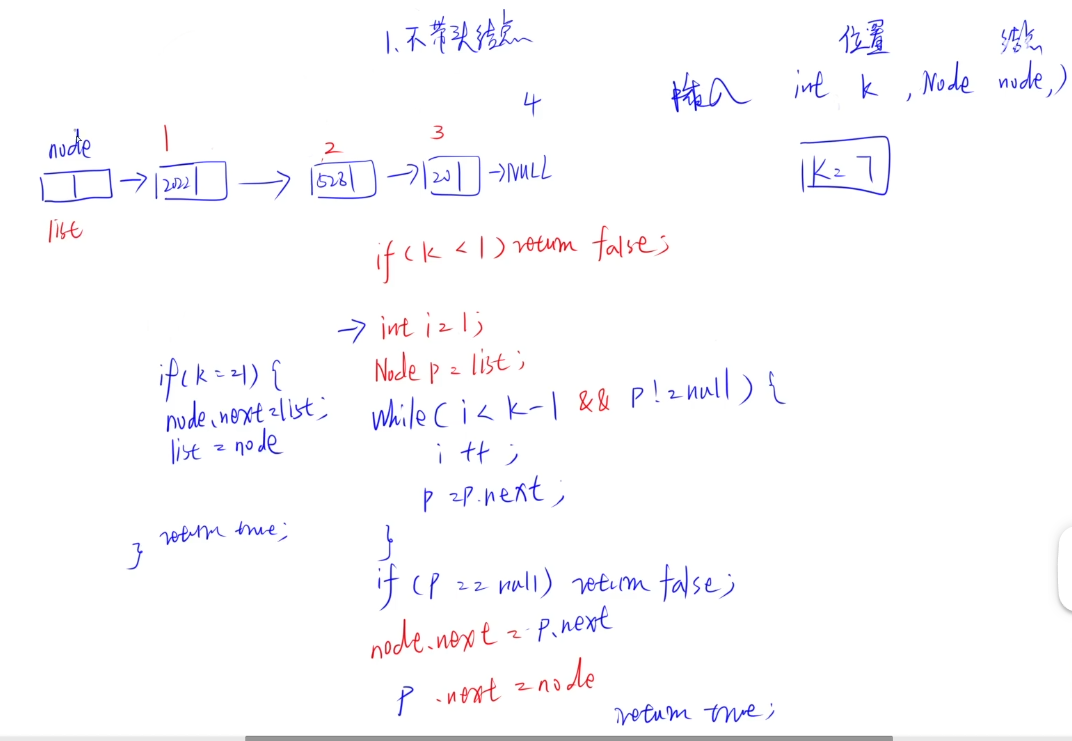 1.不带头结点
位置 结点
插入 int k , Node node,)
4
node 1 2 3
→ 2022 → 528 → 20 → NULL
list
K = 7
if(k < 1) return false;
→ int i = 1;
Node p = list;
while( i < k-1 && p != null ) {
i ++ ;
p = p.next ;
}
if (p == null) return false;
node.next = p.next
p .next = node
return true;
if(k == 1) {
node.next = list;
list = node
return true;
}